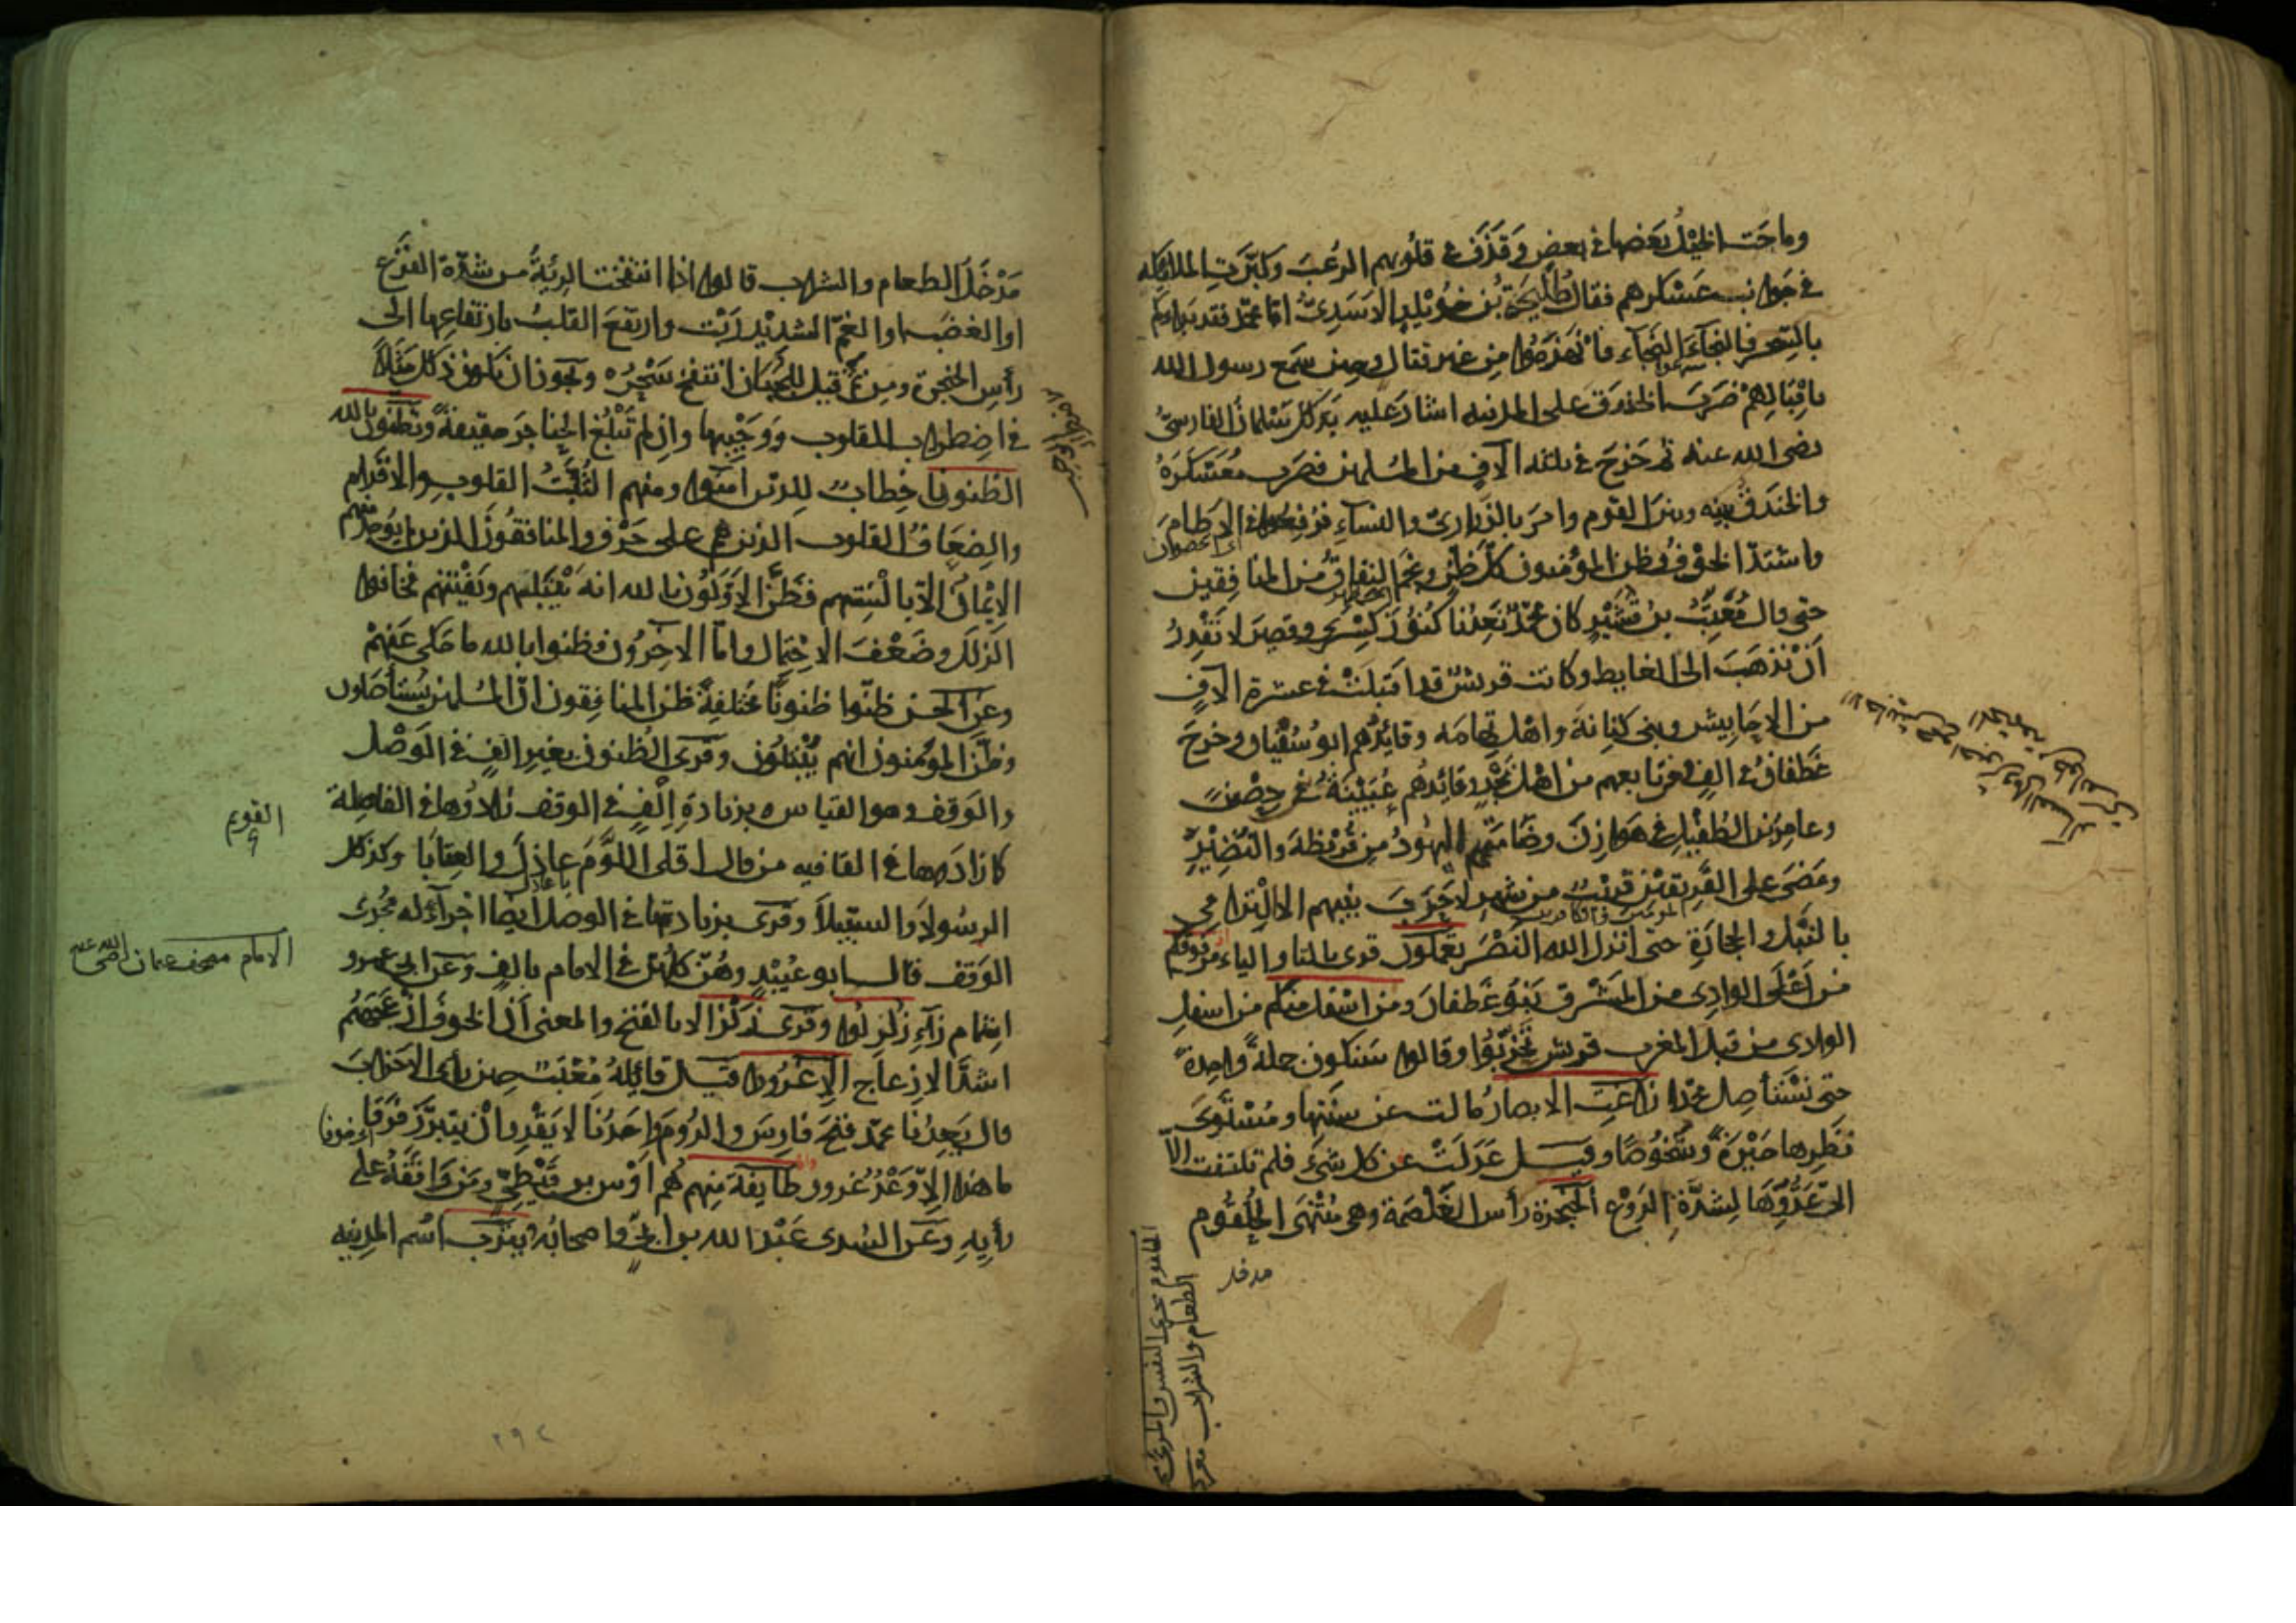 وماجَت الخَيْلُ بَعضها في بعضٍ وَقذَفَ في قلُوبهم الرعْبَ وكبّرَتِ الملايكه
في جَوانب عَسْكرهم فقال طُلَيحَة بْن خُوَيْلِدٍ الاسَدِىّ امّا محمّد فقد بدَاكم
بالسِّحر فالنجَآءَ النجَآء فانْهزَمُوا مِن غير قتال وحين سَمِع رسول الله
باقْبَالهِمْ ضرَبَ الخندَق على المدينه اشار عليه بذلك سَلْمانُ الفارسىُّ
رضى الله عنه ثم خَرَجَ في ثلثه آلافٍ من المسلمين فضرب مُعَسْكرَهُ
والخندَقُ بينه وبين القوم وامرَ بالذَّرارىّ والنسآءِ فرُفِعُوا في الاطَام
واشتدّ الخوْفُ وظن المؤمنون كلّ ظنٍّ ونجَمَ النفاقُ من المنافِقين
حتى قال مُعَتِّبُ بن قُشَيْرٍ كان محمّدٌ يَعِدُنا كُنُوْزَ كِسْرى وقيصرَ لا نَقْدِرُ
اَنْ نذهَبَ الى الغايط وكانت قريش قد اقبَلتْ في عشرة الآفٍ
من الاحَابِيش وبنى كنِانةَ واهْلِ تِهامَه وقائدُهم ابو سُفْيان وخرجَ
غطَفانُ في الفٍ ومَن تابعهم من اهْل نَجْدٍ وقائدُهم عُيَيْنَةُ بْن حِصْنٍ
وعامِرُ بن الطُفَيْلِ في هَوازِنَ وضَامّتهم اليهُودُ مِن قُرَيْظةَ والنّضِيْرِ
ومَضى على الفريقين قريْبٌ من شهرٍ لا حَرْبَ بينهم الا التَرامِى
بالنَّبْل والحِجَارَةِ حتى انزل الله النَصْرَ تعملون قرى بالتا والياء من فوقكم
من اَعْلَى الوادِى من قِبَل المَشرق بَنُو غَطفانَ ومن اسْفَل منكم من اسفلِ
الوادى من قِبَل المغرب قريش تَحَزّبُوا وقالوا سَنكون جملةً واحِدةً
حتى نَسْتأصِل محمّدا زاغَتِ الابصارُ مالت عن سننِها ومُسْتَوَى
نَظَرِها حَيْرَةً وشخُوصًا وقيل عَدَلتْ عن كل شىْءٍ فلم تلتفت الّا
الى عَدُوِّهَا لِشدّةِ الرَوْعِ الحَنْجَرة رأس الغَلْصَمة وهى مُنْتَهَى الحُلْقُوم
مدخل
الحلقوم مجرى النفس والمرئ
الطعام والشراب
مَدْخَلُ الطعام والشراب قالوا اذا انتفخت الرئةُ من شدّة الفَزَع
او الغضب او الغمّ الشديد رَبَتْ وارتفعَ القلبُ بارتفاعِها الى
رأسِ الحَنجرة ومِن ثَمّ قيل للجَبَان انتفخ سَحْرُه ويجوز ان يكون ذلك مَثَلاً
في اضِطراب القلوب ووَجِيْبها وان لم تَبْلُغ الحَناجرَ حقيقةً وتظنون بالله
الظنونا خِطابٌ للذين آمنوا ومنهم الثُّبَّتُ القلوب والاقدام
والضِعَافُ القلوب الذين هم على حَرْف والمنافقُون الذين لم يوجَد منهم
الايْمانُ الّا بألسِنَتهم فظَنّ الاوّلوُن بالله انه يَبْتَليهم ويَفْتِنهم فخافوا
الزلَلَ وضَعْفَ الاحْتِمال وامّا الاخرُون فظنوا بالله ما حَكى عَنهُمْ
وعن الحسن ظنّوا ظنونًا مختلفةً ظنَ المنافِقون انّ المسلمين يُستأصَلون
وظنّ المؤمنون انهم يُبْتَلوْن وقرى الظنون بغير الفٍ في الوَصْل
والوَقف وهو القياس وبزيادةِ اَلْفٍ في الوقف زادوها في الفاصِلة
كما زادَها في القافيه من قال اقلى اللوْمَ عاذِلَ والعِتابَا وكذلك
الرسُولاَ والسبِيْلاَ وقرى بزيادتها في الوصل ايضًا اجْرآءً له مُجْرَى
الوَقف قال ابو عُبَيْدٍ وهُنّ كلهن في الامام بالفٍ وعن ابى عمرو
اشمام زآءِ زُلزِلوا وقرى زَلْزَالا بالفتْح والمعنى اَنّ الخوفَ ازعَجَهُمْ
اشدّ الازعاج الا غُرُورًا قيل قائلهُ مُعَتِّبٌ حِين رأى الاحزابَ
قال يَعِدُنا محمّد فتحَ فارِسَ والرُومِ واحَدُنا لا يَقْدِر اَنْ يتبرّزَ فَرَقًا
ما هذا الّا وَعْدُ غُرور طايفة منهم هُم اوْس بن قَيْظِىّ ومن وَافَقهُ على
رأيه وعن السُدى عَبْدُ الله بن اُبىّ واصحابُه يَثرب اسْم المدينه
الامام مصحف عثمان رضى الله عنه
٢٩٢